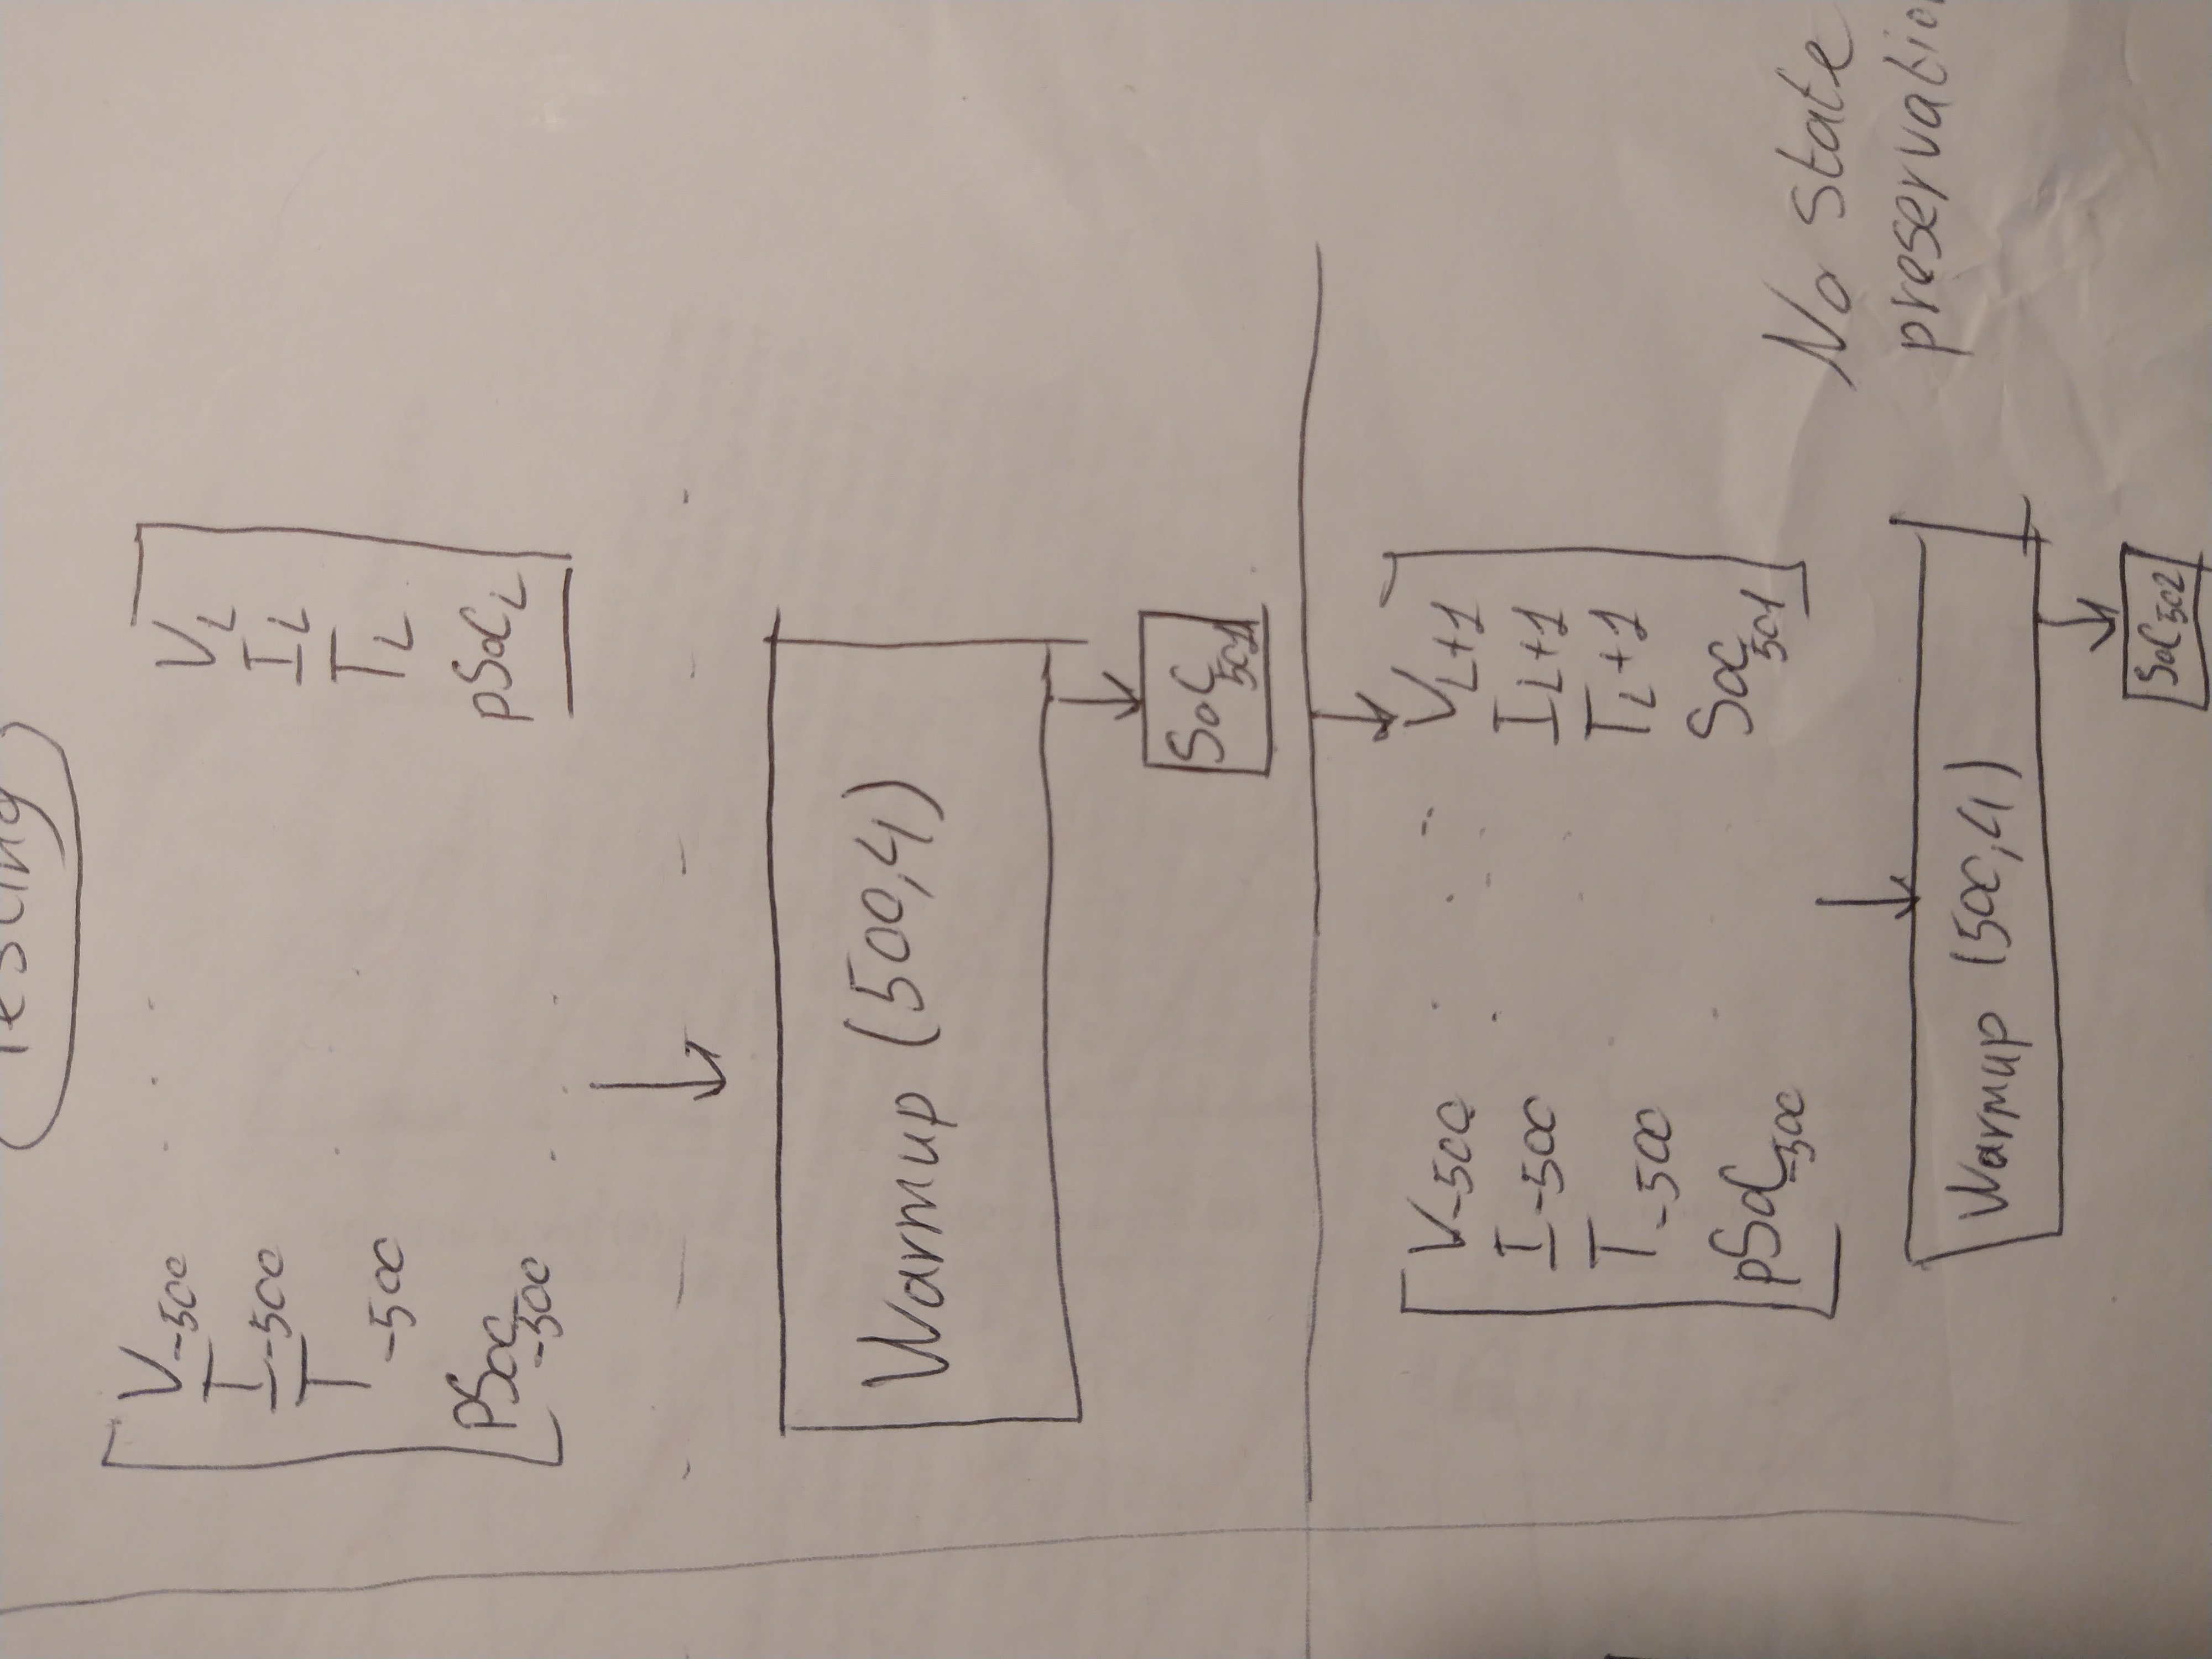 Testing
V-500 V_L
I-500 I_L
T-500 T_L
pSoC-500 pSoC_L
Warmup (500,4)
SoC501
V-500 V_L+1
I-500 I_L+1
T-500 T_L+1
pSoC-500 SoC501
No state
preservatio
Warmup (500,4)
SoC502